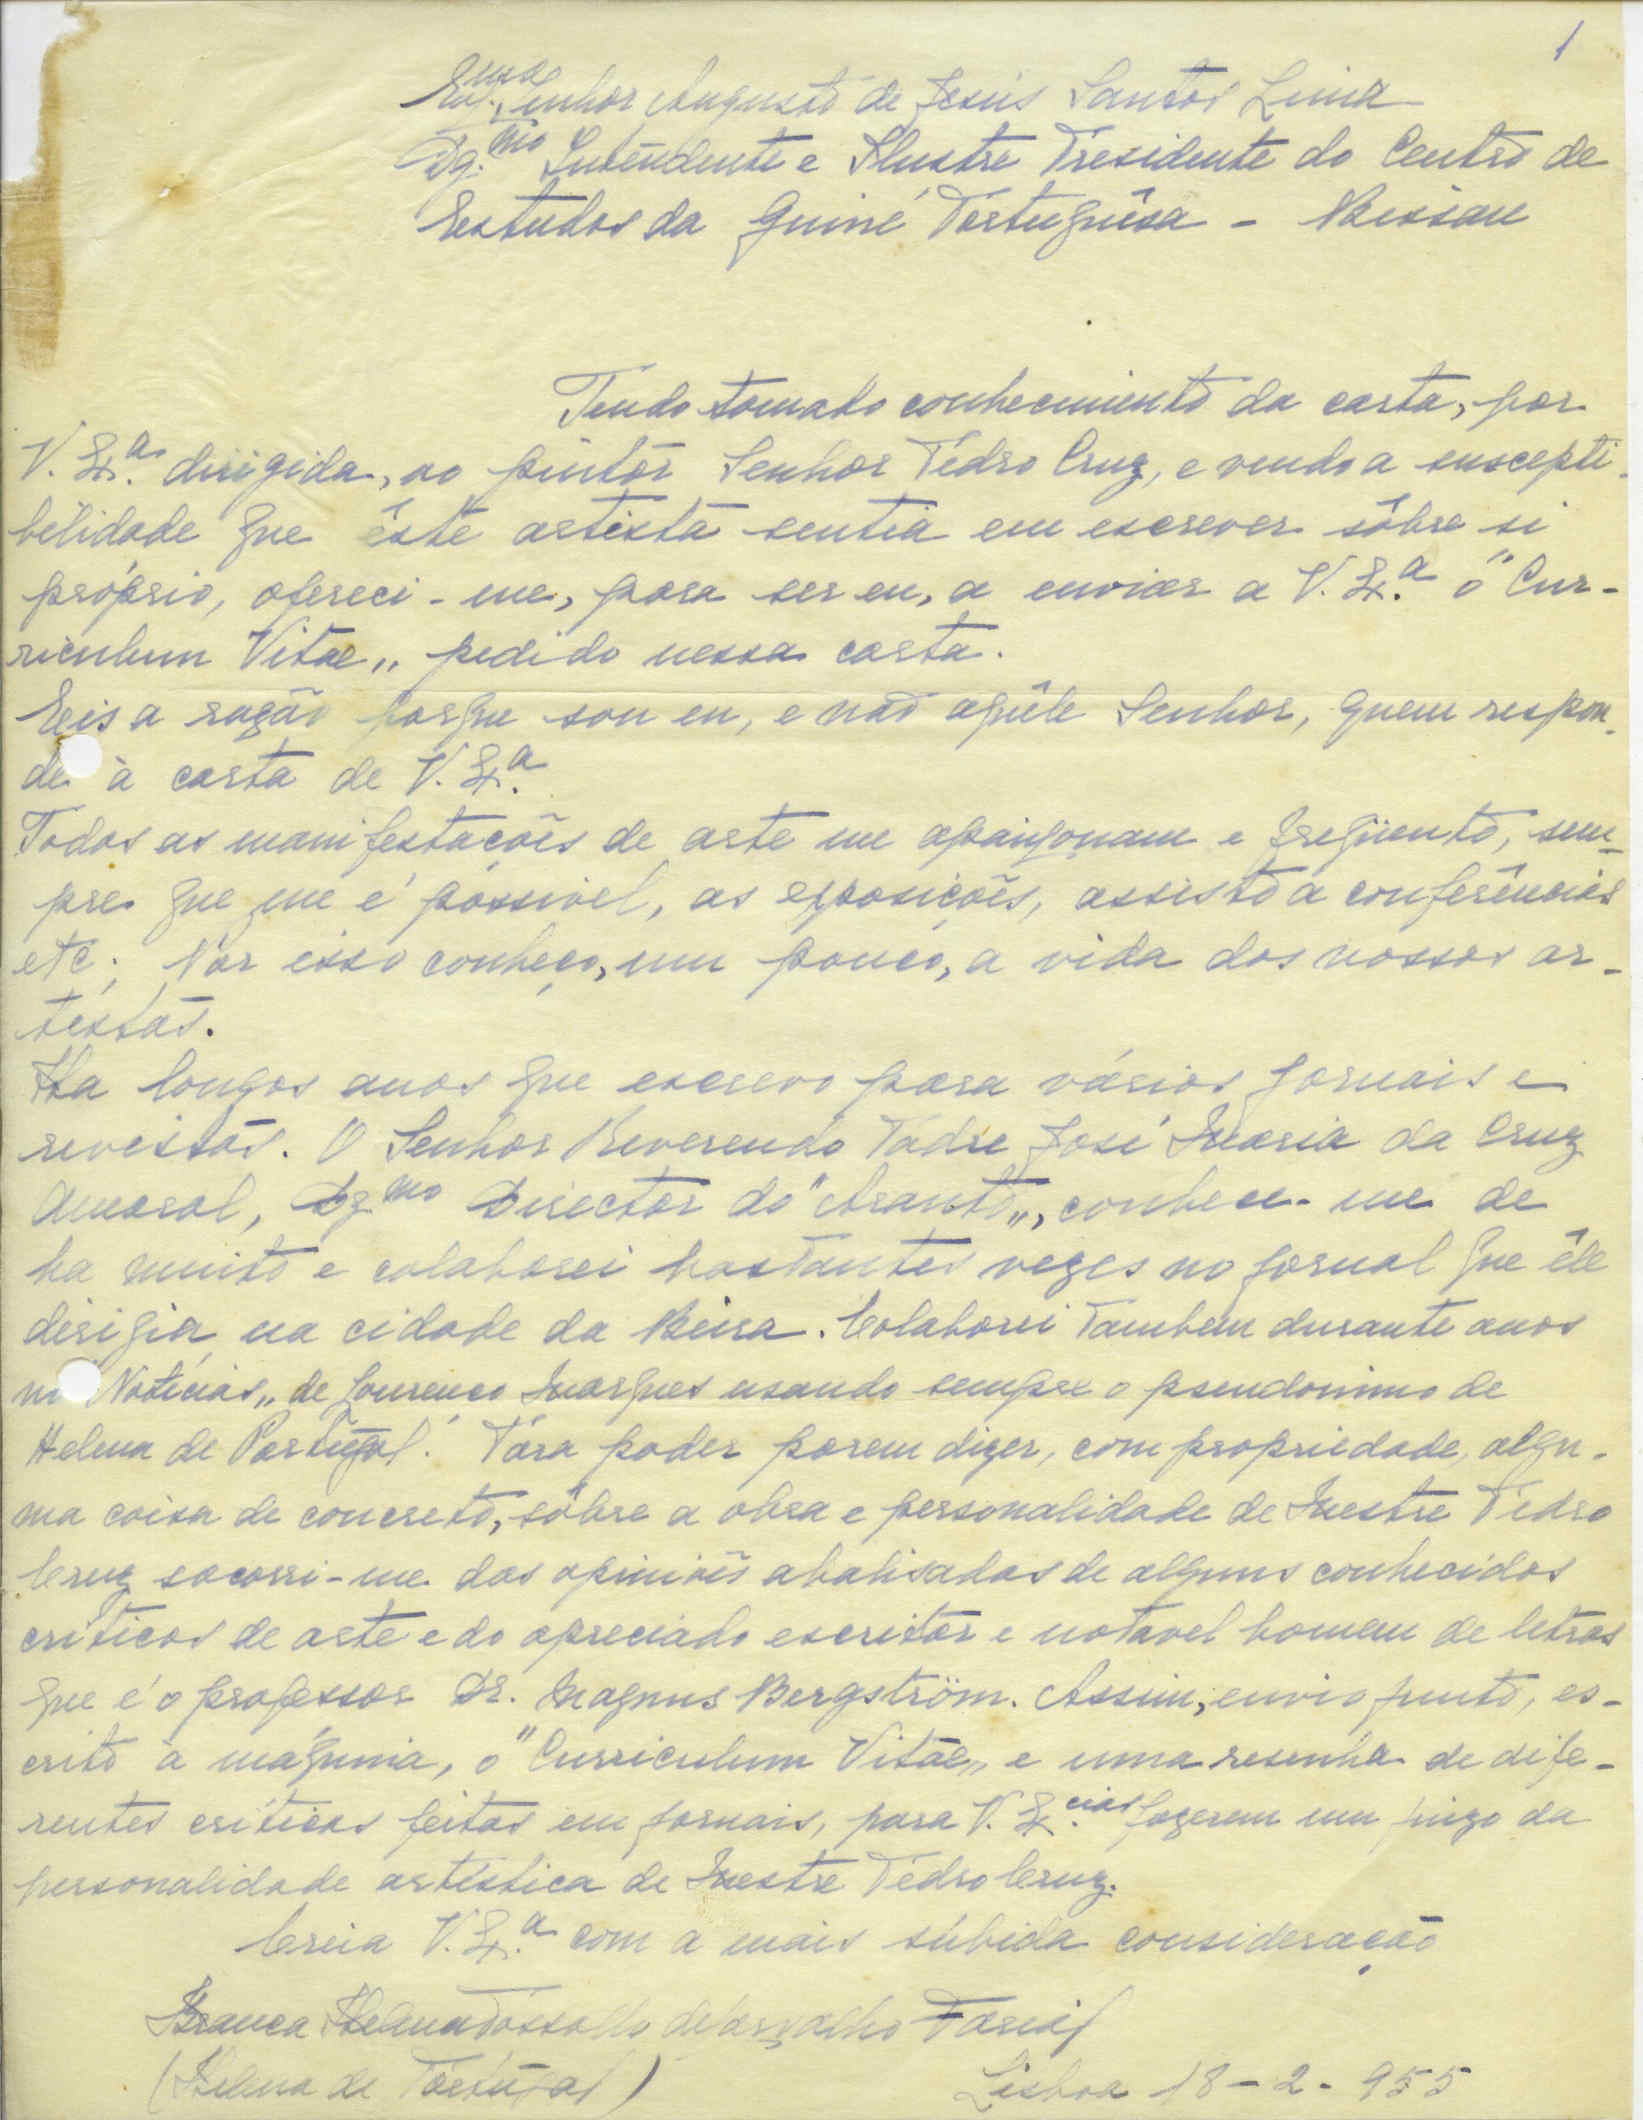 1
Ex.mo Senhor Augusto de Jesús Santos Lima
Dg.mo Intendente e Ilustre Presidente do Centro de
Estudos da Guiné Portuguêsa - Bissau
Tendo tomado conhecimento da carta, por
V. Ex.a dirigida, ao pintor Senhor Pedro Cruz, e vendo a suscepti-
bilidade que êste artista sentia em escrever sôbre si
próprio, ofereci-me, para ser eu, a enviar a V. Ex.a o "Cur-
riculum Vitae" pedido nessa carta.
Eis a razão porque sou eu, e não aquêle Senhor, quem respon-
de à carta de V. Ex.a
Todas as manifestações de arte me apaixonam e freqüento, sem-
pre que me é possivel, as exposições, assisto a conferências
etc. Por isso conheço, um pouco, a vida dos nossos ar-
tistas.
Ha longos anos que escrevo para vários jornais e
revistas. O Senhor Reverendo Padre José Maria da Cruz
Amaral, Dg.mo Director do "Arauto", conhece-me de
ha muito e colaborei bastantes vezes no jornal que êle
dirigia na cidade da Beira. Colaborei tambem durante anos
no Noticias" de Lourenço Marques usando sempre o pseudonimo de
Helena de Portugal. Para poder porem dizer, com propriedade, algu-
ma coisa de concreto, sôbre a obra e personalidade de Mestre Pedro
Cruz socorri-me das opiniões abalisadas de alguns conhecidos
criticos de arte e do apreciado escritor e notavel homem de letras
que é o professor Dr. Magnus Bergström. Assim, envio junto, es-
crito à máquina, o "Curriculum Vitae" e uma resenha de dife-
rentes criticas feitas em jornais, para V. Ex.cias fazerem um juizo da
personalidade artistica de Mestre Pedro Cruz.
Creia V. Ex.a com a mais súbida consideração
Branca Helena de Carvalho Faria
(Helena de Portugal)
Lisboa 18-2-955